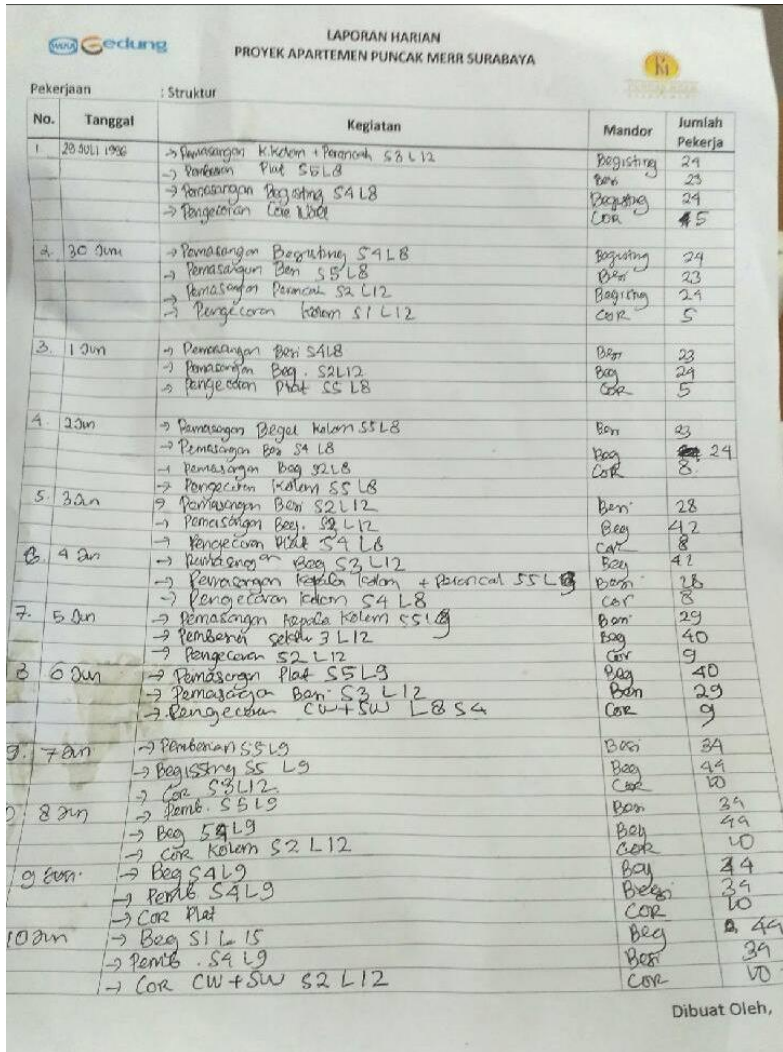 WIKA Gedung
LAPORAN HARIAN
PROYEK APARTEMEN PUNCAK MERR SURABAYA
Pekerjaan : Struktur
No. Tanggal Kegiatan Mandor Jumlah Pekerja
1. 29 JULI 1996 → Pemasangan K.Kolom + Perancah S3 L12 Begisting 24
→ Pembesian Plat S5L8 Besi 23
→ Pemasangan Begisting S4L8 Begisting 24
→ Pengecoran Core Wall COR 5
2. 30 Juni → Pemasangan Begisting S4L8 Begisting 24
→ Pemasangan Besi S5L8 Besi 23
→ Pemasangan Perancah S2 L12 Begisting 24
→ Pengecoran Kolom S1 L12 COR 5
3. 1 Jun → Pemasangan Besi S4L8 Besi 23
→ Pemasangan Beg. S2L12 Beg 24
→ Pengecoran Plat S5 L8 COR 5
4. 2 Jun → Pemasangan Begel Kolom S5L8 Besi 23
→ Pemasangan Besi S4 L8 Beg 24
→ Pemasangan Beg S2L8 COR 8
→ Pengecoran Kolom S5 L8
5. 3 Jun → Pemasangan Besi S2L12 Besi 28
→ Pemasangan Beg. S2 L12 Beg 42
→ Pengecoran Plat S4 L8 Cor 8
6. 4 Jun → Pemasangan Beg S3 L12 Beg 42
→ Pemasangan Kepala Kolom + Perancah S5L9 Besi 28
→ Pengecoran Kolom S4 L8 Cor 8
7. 5 Jun → Pemasangan Kepala Kolom S5L9 Besi 29
→ Pembesian 3 L12 Beg 40
→ Pengecoran S2 L12 Cor 9
8 6 Jun → Pemasangan Plat S5L9 Beg 40
→ Pemasangan Besi S3 L12 Besi 29
→ Pengecoran CW+SW L8 S4 COR 9
9. 7 Jun → Pembesian S5L9 Besi 34
→ Begissting S5 L9 Beg 44
→ Cor S3L12 Cor 10
8 Jun → Pemb. S5L9 Besi 34
→ Beg S4L9 Beg 44
→ COR Kolom S2 L12 Cor 10
9 Jun → Beg S4L9 Beg 44
→ Pemb S4L9 Besi 34
→ COR Plat COR 10
10 Jun → Beg S1 L 15 Beg 44
→ Pemb . S4 L9 Besi 34
→ COR CW+SW S2 L12 COR 10
Dibuat Oleh,